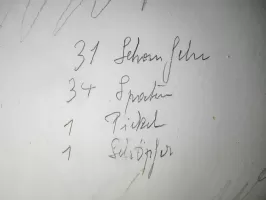 31 Schaufeln
34 Spaten
1 Pickel
1 Schöpfer